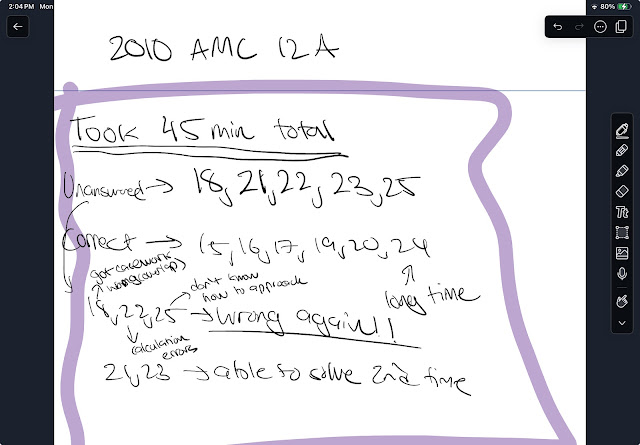 2:04 PM Mon
80%
2010 AMC 12A
Took 45 min total
Unanswered → 18, 21, 22, 23, 25
Correct → 15, 16, 17, 19, 20, 24
long time
got casework wrong (overlap)
don't know how to approach
18, 22, 25 → wrong again!!
calculation errors
21, 23 → able to solve 2nd time
Tt